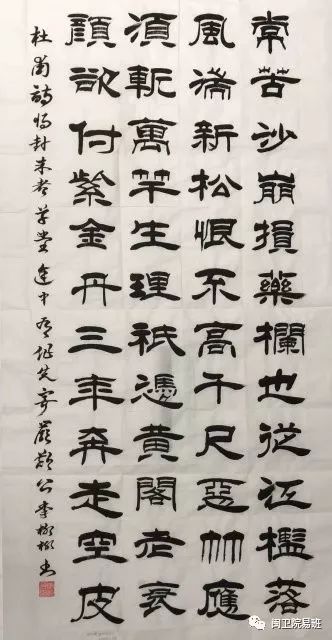 常苦沙崩損藥欄也從江檻落
風湍新松恨不高千尺惡竹應
須斬萬竿生理祇憑黃閣老衰
顏欲付紫金丹三年奔走空皮
杜甫詩將赴成都草堂途中有作先寄嚴鄭公李書
闽卫院易班